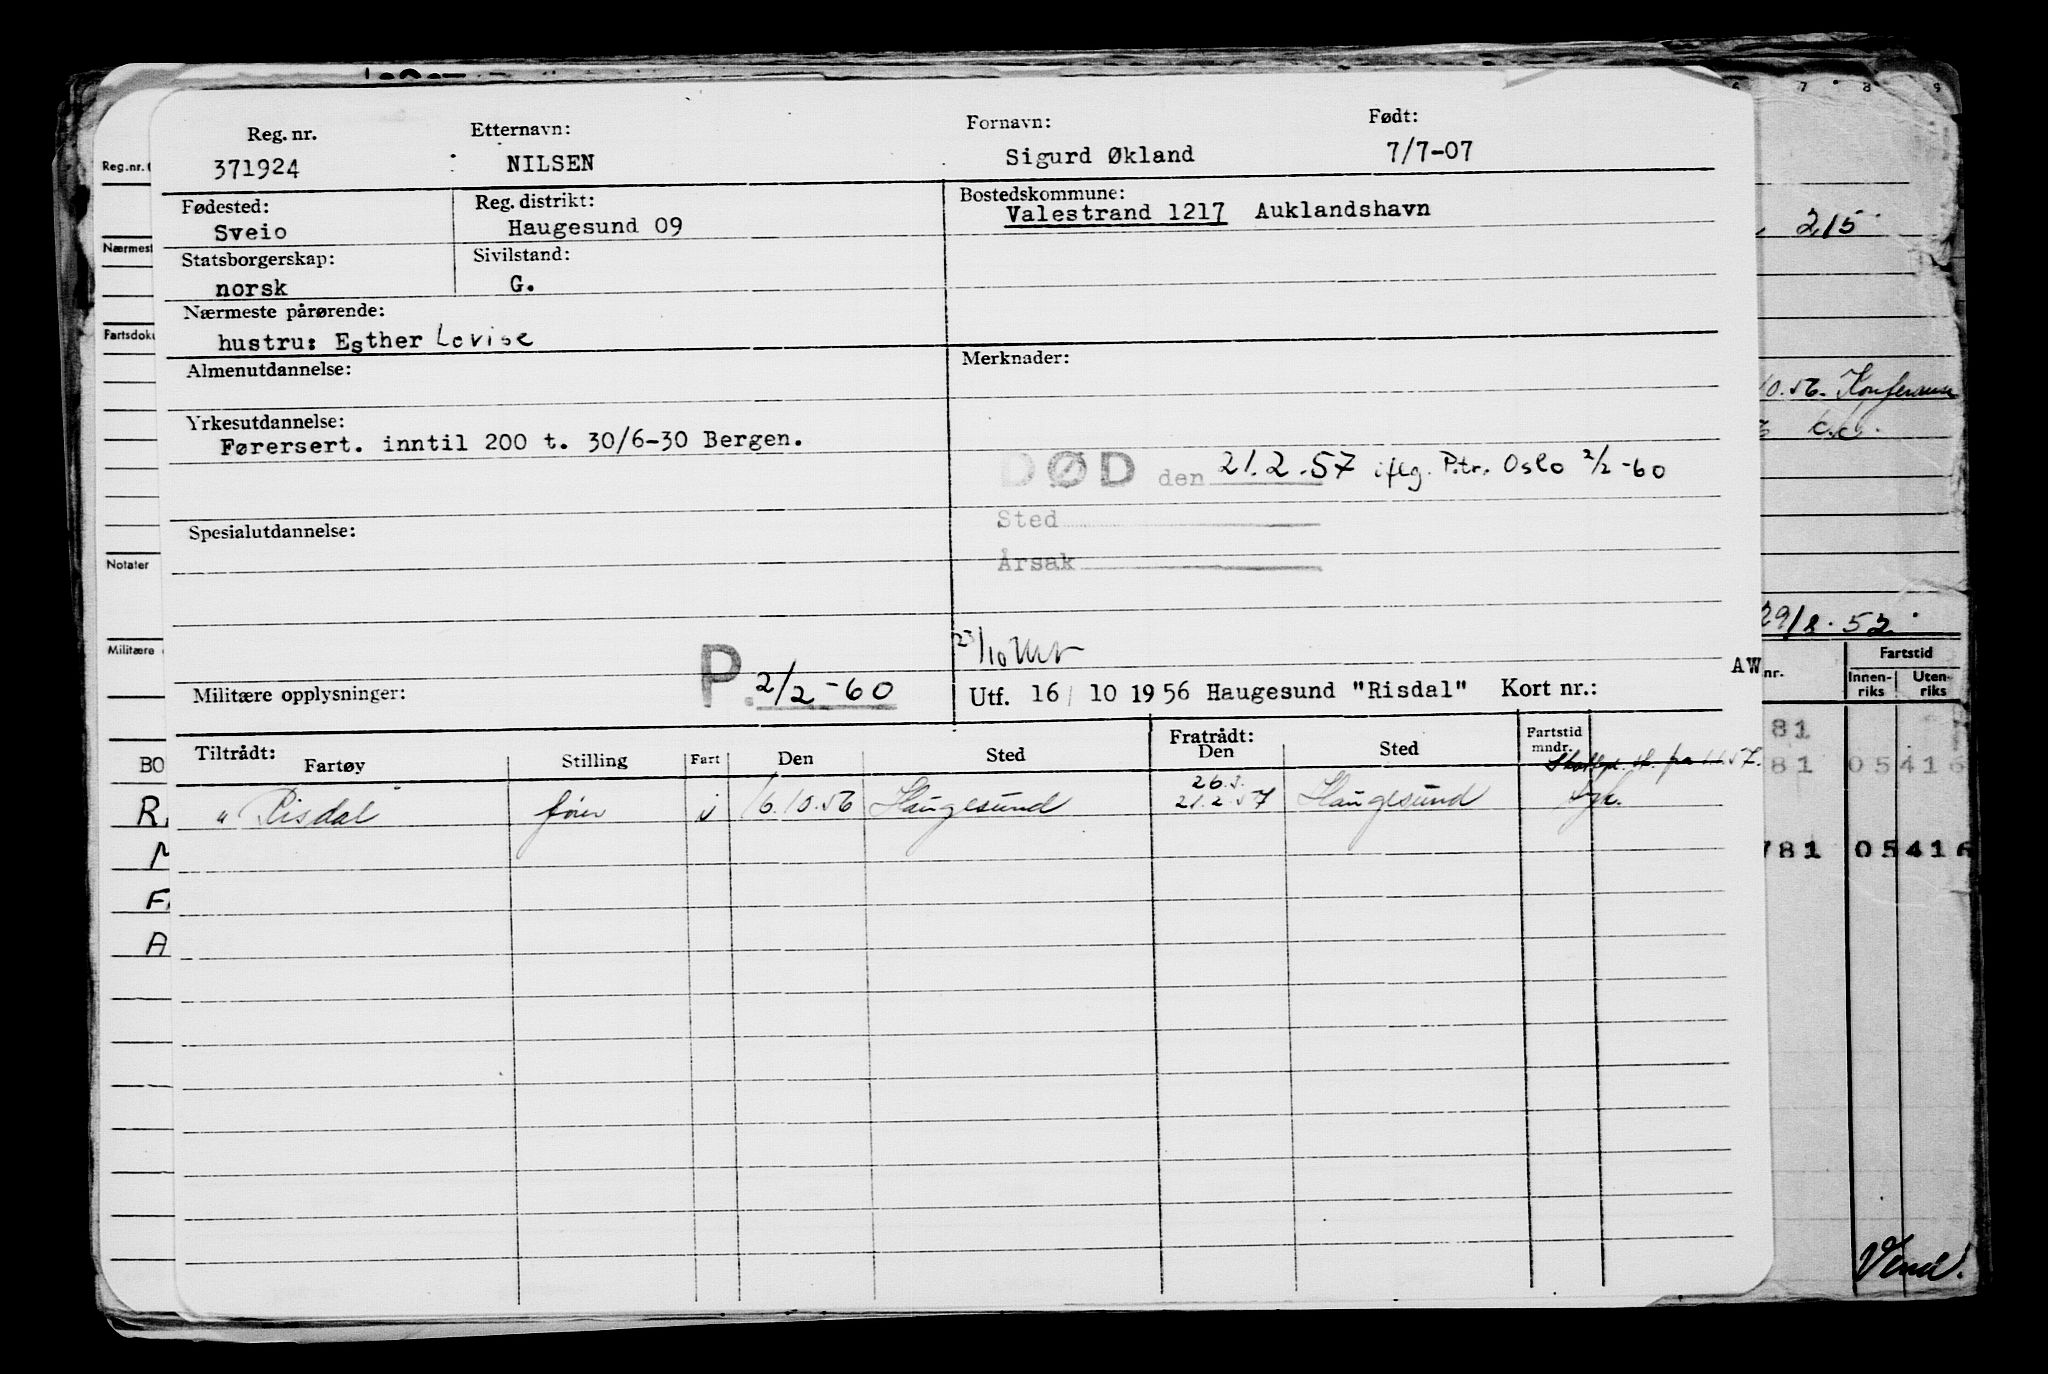 Reg. nr. Etternavn: Fornavn: Født:
371924 NILSEN Sigurd Økland 7/7-07
Fødested: Reg. distrikt: Bostedskommune:
Sveio Haugesund 09 Valestrand 1217 Auklandshavn
Statsborgerskap: Sivilstand:
norsk G.
Nærmeste pårørende:
hustru: Esther Lovise
Almenutdannelse: Merknader:
Yrkesutdannelse:
Førersert. inntil 200 t. 30/6-30 Bergen.
DØD den 21.2.57 iflg. P.tr. Oslo 2/2-60
Sted
Årsak
Spesialutdannelse:
23/10
Militære opplysninger: P. 2/2-60 Utf. 16/ 10 1956 Haugesund "Risdal" Kort nr.:
Tiltrådt: Fratrådt: Fartstid mndr.
Fartøy Stilling Fart Den Sted Den Sted
26.3.
" Risdal fører i 16.10.56 Haugesund 21.2.57 Haugesund
Reg.nr. (
Nærmest
Fartsdoku
Notater
Militære
BO
R
M
F
A
6 7 8 9
215
10.56. Konferer
c.c.
29/8.52
AW nr. Fartstid
Innen-riks Uten-riks
81
81 05416
781 05416
Vend!